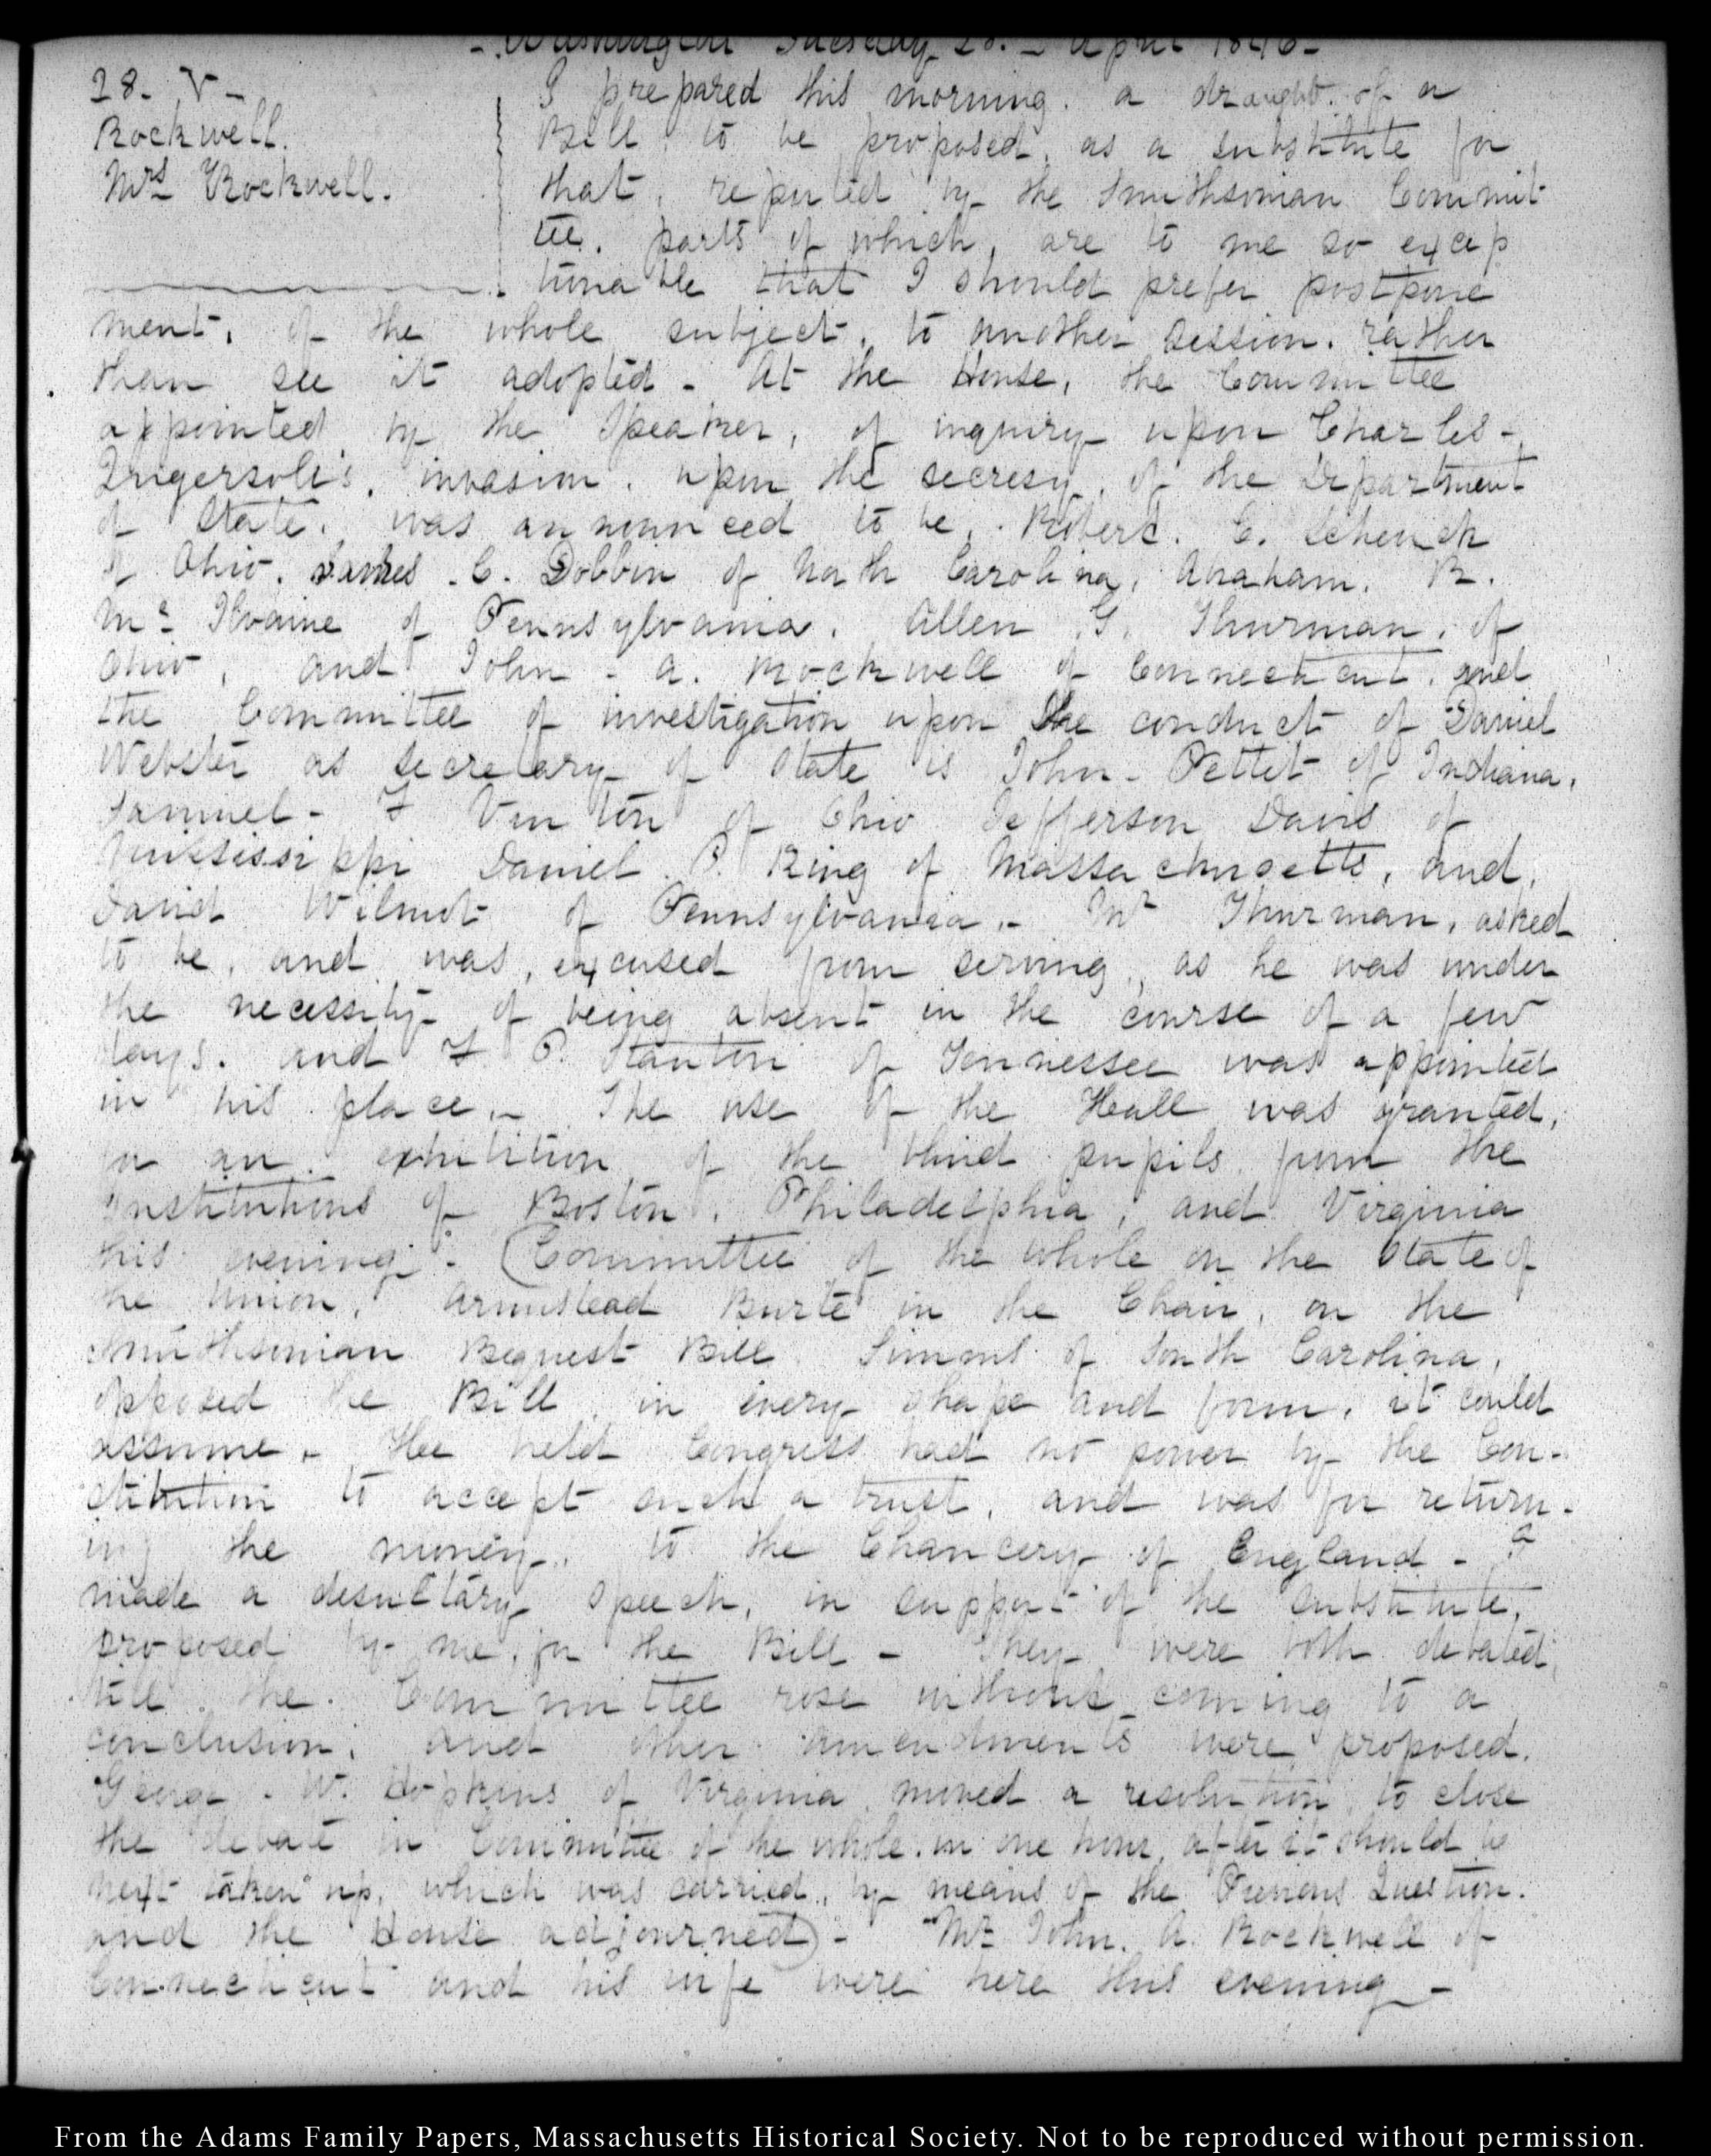 - Washington Tuesday 28. - April 1846 -
28. V -
Rockwell.
Mrs Rockwell.
I prepared this morning. a draught. of a
Bill, to be proposed, as a substitute for
that, reported by the Smithsonian Commit-
tee. parts of which, are to me so excep
tionable that I should prefer postpone
ment, of the whole subject, to another session, rather
than see it adopted - At the House, the Committee
appointed by the Speaker, of inquiry upon Charles -
Ingersoll's, invasion, upon the secresy, of the Department
of State, was announced to be, Robert. C. Schenck
of Ohio, James. C. Dobbin of North Carolina, Abraham. R.
Mc Ilvaine of Pennsylvania, Allen G. Thurman, of
Ohio, and John - A. Rockwell of Connecticut, and
the Committee of investigation upon the conduct of Daniel
Webster as Secretary of State is John - Pettit of Indiana,
Samuel - F Vinton of Ohio Jefferson Davis of
Mississippi Daniel P. King of Massachusetts, and,
David Wilmot of Pennsylvania. - Mr Thurman, asked
to be, and was, excused from serving, as he was under
the necessity of being absent in the course of a few
days. and F P. Stanton of Tennessee was appointed
in his place. - The use of the Hall was granted,
for an exhibition of the blind pupils from the
institutions of Boston, Philadelphia, and Virginia
this evening - (Committee of the whole on the State of
the Union, Armistead Burte in the Chair, on the
Smithsonian Bequest Bill Simons of South Carolina,
opposed the Bill, in every shape and form, it could
assume - He held Congress had no power by the Con-
stitution to accept such a trust, and was for return-
ing the money, to the Chancery of England -
made a desultory speech, in support of the substitute,
proposed by me, for the Bill - They were both debated,
till the Committee rose without coming to a
conclusion, and other amendments were proposed.
George - W. Hopkins of Virginia moved a resolution, to close
the debate in Committee of the whole. in one hour, after it should be
next taken up, which was carried, by means of the Previous Question.
and the House adjourned) - Mr John. A. Rockwell of
Connecticut and his wife were here this evening -
From the Adams Family Papers, Massachusetts Historical Society. Not to be reproduced without permission.